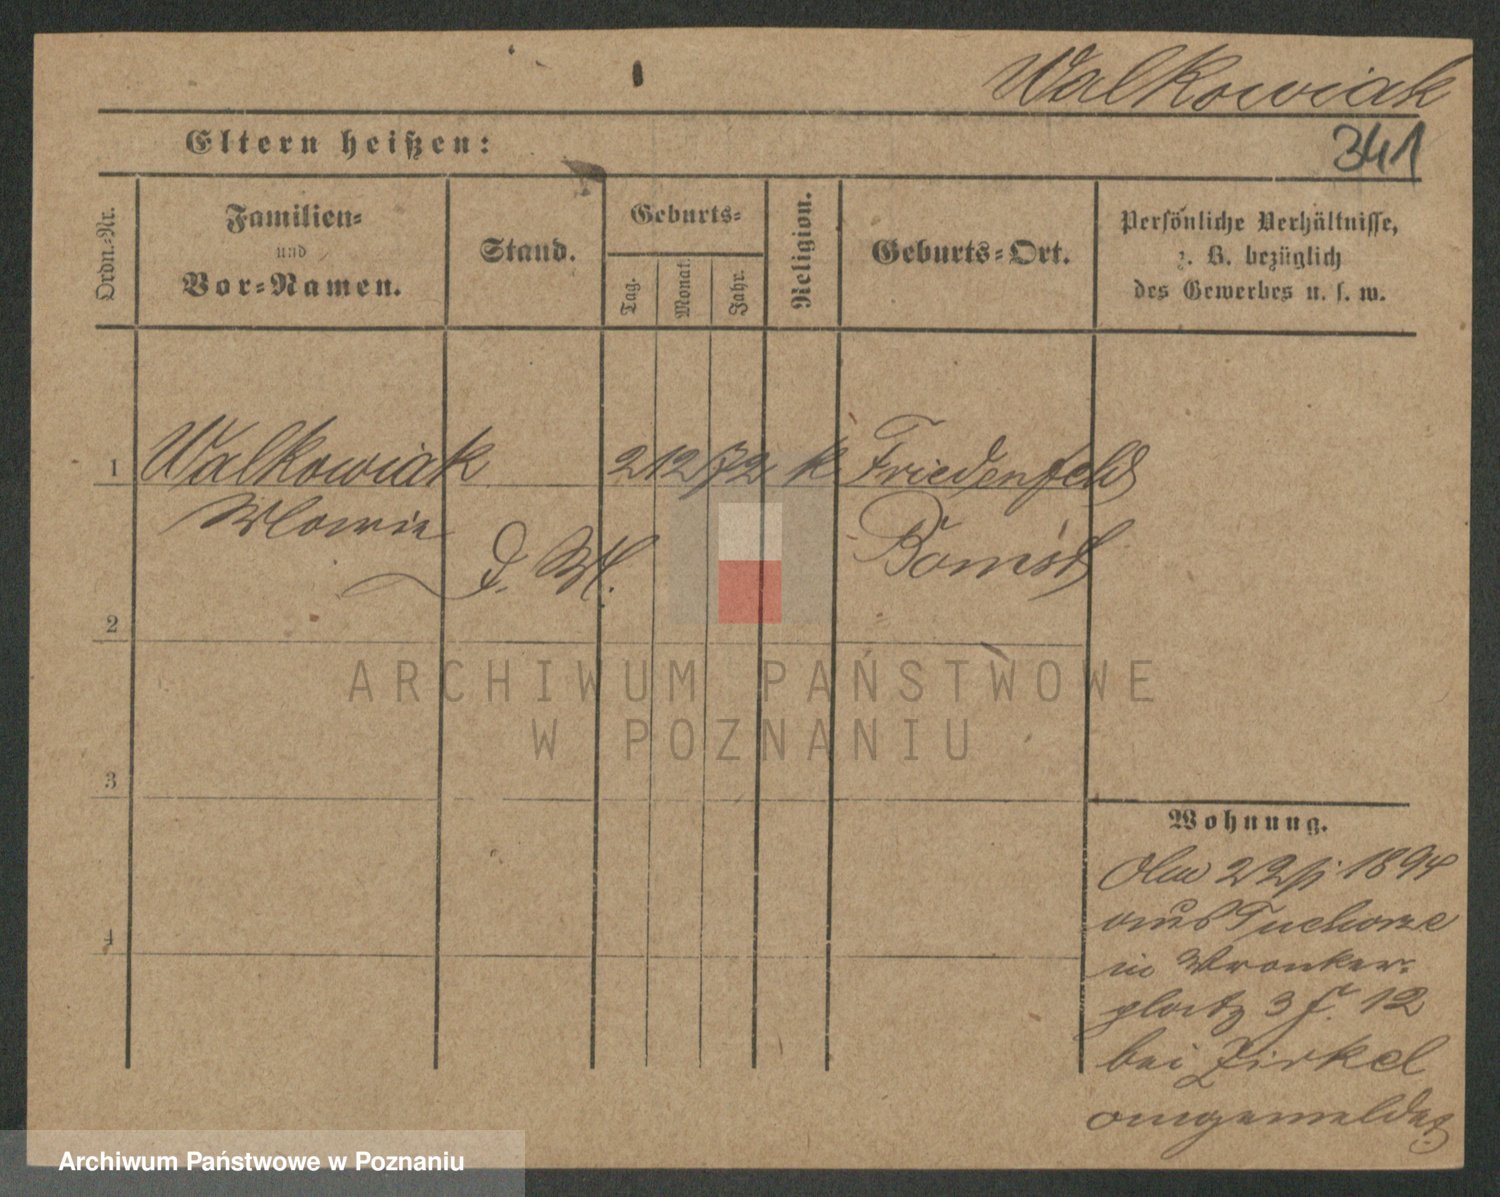 Walkowiak
341
Eltern heißen:
Ordn.-Nr.
Familien-
und
Vor-Namen.
Stand.
Geburts-
Tag.
Monat.
Jahr.
Religion.
Geburts-Ort.
Persönliche Verhältnisse,
z. B. bezüglich
des Gewerbes u. s. w.
1 Walkowiak 2 12 72 k Friedenfeld
Marie
D. M. Bomst
2
3
4
Wohnung.
Am 22/ 1894
aus Tuchorze
in Wronker-
platz 3 12
bei Zirkel
angemeldet
ARCHIWUM PAŃSTWOWE
W POZNANIU
Archiwum Państwowe w Poznaniu